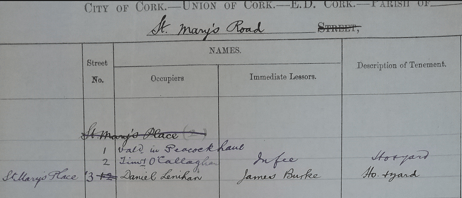 CITY OF CORK.—UNION OF CORK.—E.D. CORK.—PARISH OF
St. Mary's Road STREET,
Street No.
NAMES.
Occupiers
Immediate Lessors.
Description of Tenement.
St Mary's Place
1 Vald in Peacock Lane
2 Timy O'Callaghan In fee Ho & yard
St Marys Place 3 Daniel Lenihan James Burke Ho & yard